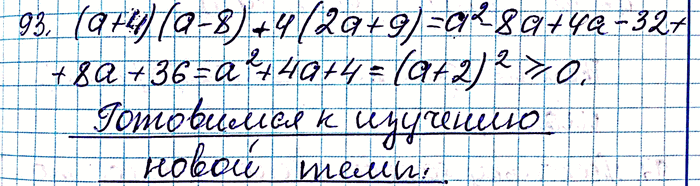 93. (a+4)(a-8)+4(2a+9)=a²-8a+4a-32+
+8a+36=a²+4a+4=(a+2)²⩾0.
Готовимся к изучению
новой темы.